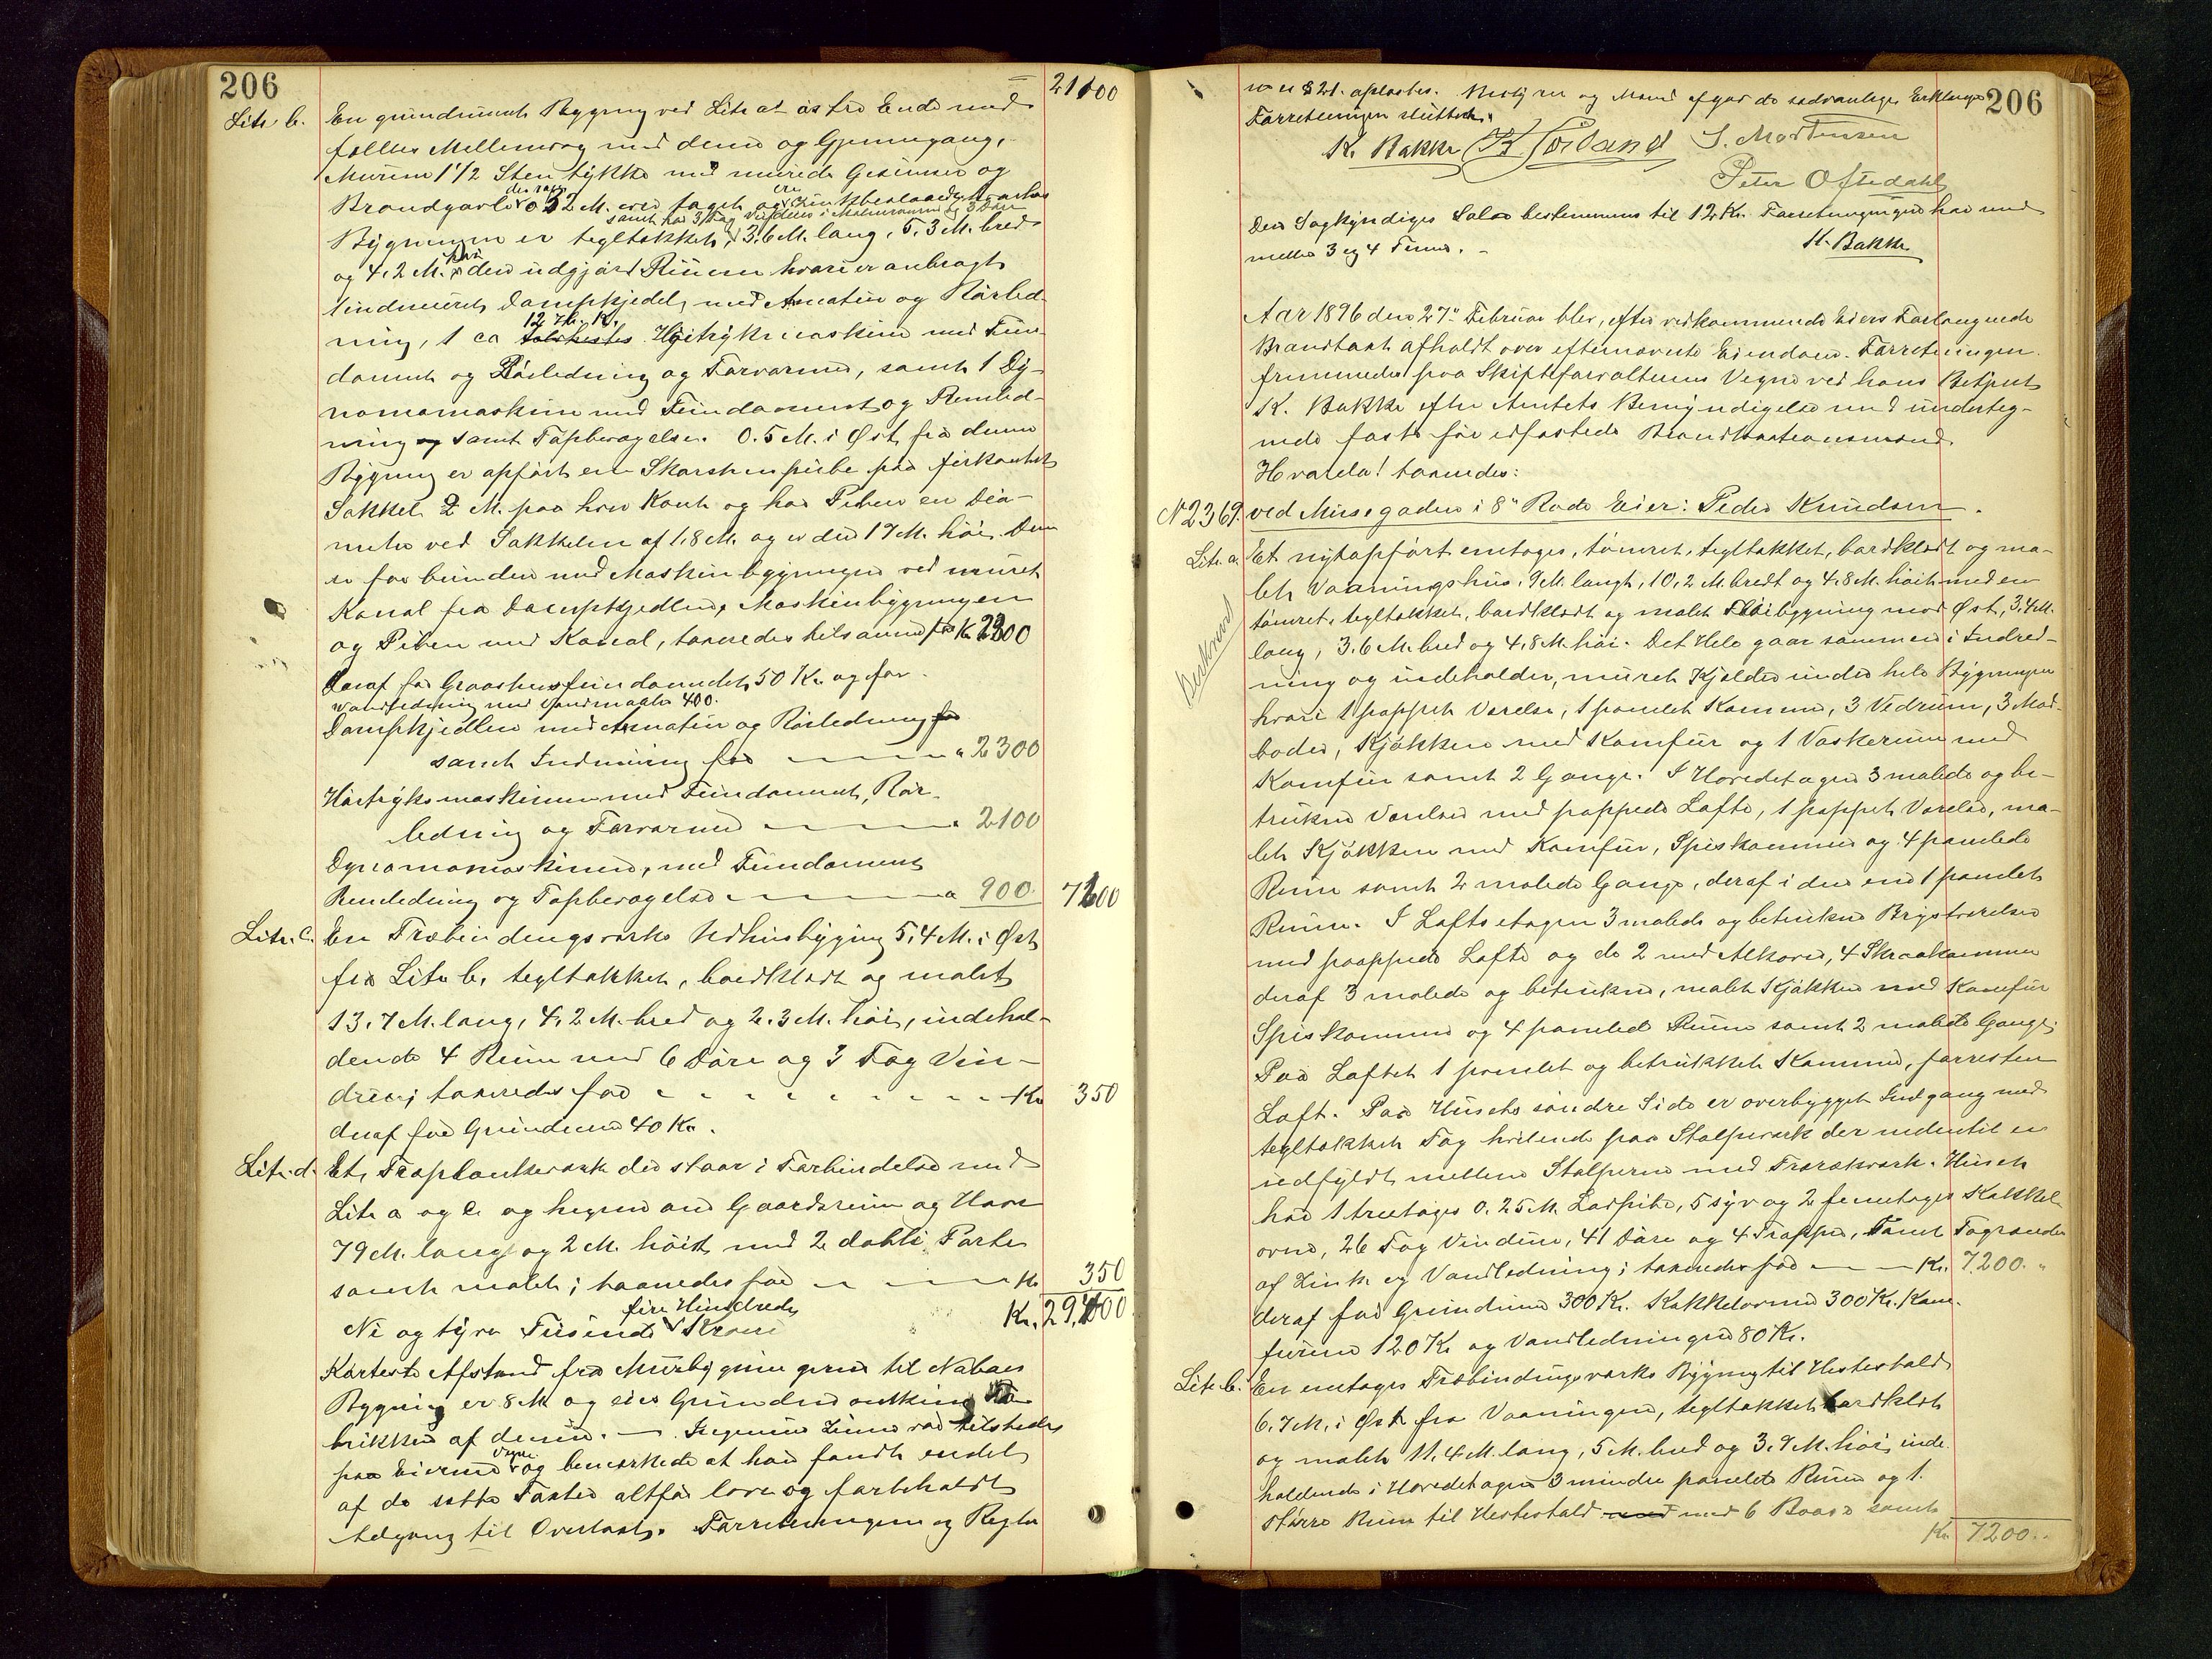 206
21100
Litr. b. En grundmuret Bygning ved Litr a's østre Ende med
fælles Mellemvæg med denne og Gjennemgang,
Murene 1 1/2 Sten tykke med murede Gesimser og
Brandgavle der rager 0.32 M. over taget og ere Zinkbeslaaede
samt har 3 Fag Vinduer i og 3 Døre
Bygningen er tegltækket, 3.6 M. lang, 5.3 M. bred
og 4.2 M. høi den udgjør 1 Rum hvori er anbragt
1 indmuret Dampkjedel med Armatur og Rørled-
12 H. K.
ning, 1 ca tolvhestes Høitryksmaskine med Fun-
dament og Rørledning og Forvarmer, samt 1 Dy-
namomaskine med Fundament og Remled-
ning og samt Tapbevægelse. 0.5 M. i Øst fra denne
Bygning er opført en Skorstenspibe paa firkantet
Sokkel 2 M. paa hver Kant og har Piben en Dia-
meter ved Sokkelen af 1.8 M. og er den 17 M. høi. Den
er forbunden med Maskinbygningen ved muret
Kanal fra Dampkjedlen, Maskinbygningen
og Piben med Kanal, taxeredes tilsammen for Kr. 2300
Deraf for Graastensfundamentet 50 Kr. og for
Vandledning med Vandmaaler 400.
Dampkjedlen med Armatur og Rørledning for
samt Indmuring for " 2300
Høitryksmaskinen med Fundament, Rør-
ledning og Forvarmer " 2100
Dynamomaskinen, med Fundament
Remledning og Tapbevægelse " 900. 7600
Litr. c. En Træbindingsværks Udhusbygning 5.4 M. i Øst
fra Litr b, tegltækket, bordklædt og malet
13.7 M. lang, 4.2 M. bred og 2.3 M. høi, indehol-
dende 4 Rum med 6 Døre og 3 Fag Vin-
duer; taxeredes for Kr 350
deraf for Grundmur 40 Kr.
Litr. d. Et Træplankeværk der staar i Forbindelse med
Litr a og c og hegner om Gaardsrum og Have
79 M. langt og 2 M. høit med 2 doble Porte
samt malet; taxeredes for Kr 350
Kr. 29,400
fire Hundrede
Ni og tyve Tusinde Kroner
Korteste Afstand fra Murbygningerne til Naboens
Bygning er 8 M. og eies Grunden omkring Fa-
brikken af denne. — Ingeniør var tilstede
paa Eiernes Vegne og bemærkede at han fandt endel
af de satte Taxter altfor lave og forbeholdt
Adgang til Overtaxt. Forretningen og Regler
206
nes § 21. oplæstes. Bestyrer og Mænd afgav de sædvanlige Erklæringer
Forretningen sluttedes.
K. Bakke K. Joiland S. Mortensen
Peter Oftedahl
Den Sagkyndiges Salær bestemmes til 12 Kr. Forretningen har med
mellem 3 og 4 Timer. — K. Bakke
Aar 1896 den 27de Februar blev, efter vedkommende Eiers Forlangende
Brandtaxt afholdt over efternævnte Eiendom. Forretningen
fremmedes paa Skifteforvalterens Vegne ved hans Betjent
K. Bakke efter Amtets Bemyndigelse med underteg-
nede faste for edfæstede Brandtaxationsmænd.
Hvorda! taxeredes:
N 2369. ved Musegaden i 8de Rode Eier: Peder Knudsen.
Beskreved
Litr. a. Et nyt opført enetages, tømret, tegltækket, bordklædt og ma-
let Vaaningshus, 9 M. langt, 10.2 M. bredt og 4.8 M. høit med en
tømret, tegltækket, bordklædt og malet Fløibygning mod Øst, 3.4 M.
lang, 3.6 M. bred og 4.8 M. høi. Det Hele gaar sammen i Indred-
ning og indeholder, muret Kjelder under hele Bygningen
hvori 1 pappet Værelse, 1 panelet Kammer, 3 Vedrum, 3 Mad-
boder, Kjøkken med Komfur og 1 Vaskerum med
Komfur samt 2 Gange. I Hovedetagen 3 malede og be-
trukne Værelser med pappede Lofte, 1 pappet Værelse, ma-
let Kjøkken med Komfur, Spiskammer og 4 panelede
Rum samt 2 malede Gange, deraf i den ene 1 panelet
Rum. I Loftsetagen 3 malede og betrukne Brystværelser
med pappede Lofte og de 2 med Alkover, 4 Skraakammer
deraf 3 malede og betrukne, malet Kjøkken med Komfur
Spiskammer og 4 panelede Rum samt 2 malede Gange;
Paa Loftet 1 panelet og betrukket Kammer, forresten
Loft. Paa Husets søndre Side er overbygget Indgang med
tegltækket Tag hvilende paa Stolpeværk der nedentil er
udfyldt mellem Stolperne med Træværk. Huset
har 1 treetages 0.25 M. Ladpibe, 5 syv og 2 femetages Kakkel-
ovne, 26 Fag Vinduer, 41 Døre og 4 Trapper, samt Tagrender
af Zink og Vandledning; taxeredes for Kr. 7,200. "
deraf for Grundmur 300 Kr. Kakkelovne 300 Kr. Kom-
furene 120 Kr og Vandledningen 80 Kr.
Litr. b. En enetages Træbindingsværks Bygning til Hestestald
6.7 M. i Øst fra Vaaningen, tegltækket, bordklædt
og malet 11.4 M. lang, 5 M. bred og 3.9 M. høi, inde-
holdende i Hovedetagen 3 mindre panelede Rum og 1
større Rum til Hestestald med med 6 Baase samt
Kr. 7200..